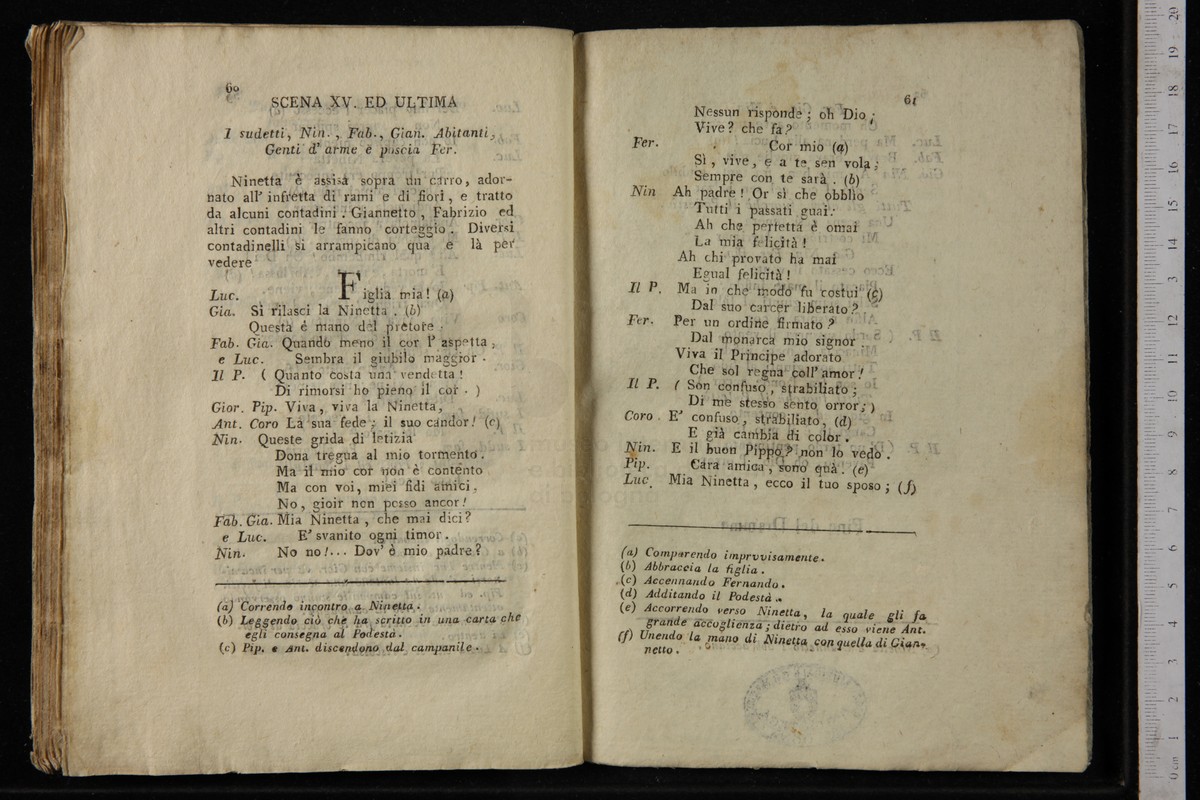 60
SCENA XV. ED ULTIMA
I sudetti, Nin., Fab., Gian. Abitanti,
Genti d' arme e poscia Fer.
Ninetta è assisa sopra un carro, ador-
nato all' infretta di rami e di fiori, e tratto
da alcuni contadini. Giannetto, Fabrizio ed
altri contadini le fanno corteggio. Diversi
contadinelli si arrampicano qua e là per
vedere
Luc. Figlia mia! (a)
Gia. Si rilasci la Ninetta. (b)
Questa è mano del pretore.
Fab. Gia. Quando meno il cor l' aspetta,
e Luc. Sembra il giubilo maggior.
Il P. ( Quanto costa una vendetta!
Di rimorsi ho pieno il cor. )
Gior. Pip. Viva, viva la Ninetta,
Ant. Coro La sua fede; il suo candor! (c)
Nin. Queste grida di letizia
Dona tregua al mio tormento.
Ma il mio cor non è contento
Ma con voi, miei fidi amici,
No, gioir non posso ancor!
Fab. Gia. Mia Ninetta, che mai dici?
e Luc. E' svanito ogni timor.
Nin. No no!... Dov' è mio padre?
(a) Correndo incontro a Ninetta.
(b) Leggendo ciò che ha scritto in una carta che
egli consegna al Podestà.
(c) Pip. e Ant. discendono dal campanile.
61
Nessun risponde; oh Dio;
Vive? che fa?
Fer. Cor mio (a)
Sì, vive, e a te sen vola;
Sempre con te sarà. (b)
Nin Ah padre! Or sì che obblìo
Tutti i passati guai.
Ah che perfetta è omai
La mia felicità!
Ah chi provato ha mai
Egual felicità!
Il P. Ma in che modo fu costui (c)
Dal suo carcer liberato?
Fer. Per un ordine firmato?
Dal monarca mio signor
Viva il Principe adorato
Che sol regna coll' amor!
Il P. ( Son confuso, strabiliato;
Di me stesso sento orror; )
Coro. E' confuso, strabiliato, (d)
E già cambia di color.
Nin. E il buon Pippo? non lo vedo.
Pip. Cara amica, sono quà. (e)
Luc. Mia Ninetta, ecco il tuo sposo; (f)
(a) Comparendo imprvvisamente.
(b) Abbraccia la figlia.
(c) Accennando Fernando.
(d) Additando il Podestà.
(e) Accorrendo verso Ninetta, la quale gli fa
grande accoglienza; dietro ad esso viene Ant.
(f) Unendo la mano di Ninetta con quella di Gian-
netto.
0 cm 1 2 3 4 5 6 7 8 9 10 11 12 13 14 15 16 17 18 19 20